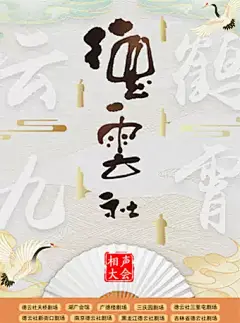 德雲社
鹤霄
云九
相声
大会
德云社天桥剧场 湖广会馆 广德楼剧场 三庆园剧场 德云社三里屯剧场
德云社新街口剧场 南京德云社剧场 黑龙江德云社剧场 吉林省德云社剧场